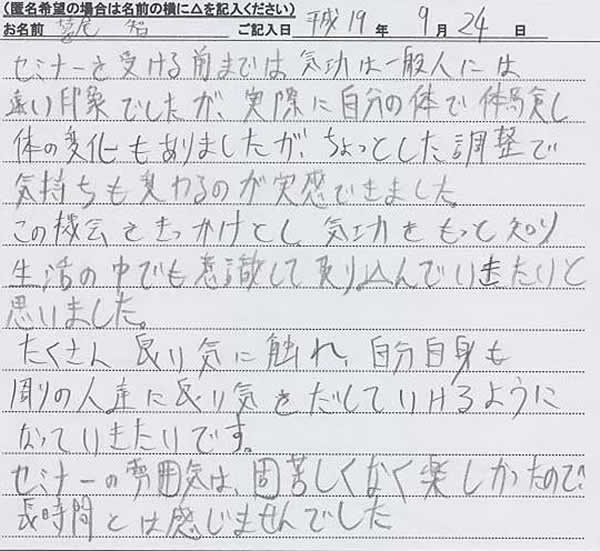 (匿名希望の場合は名前の横に△を記入ください)
お名前 鷲尾 知 ご記入日 平成19年 9月24日
セミナーを受ける前までは気功は一般人には
遠い印象でしたが、実際に自分の体で体験し
体の変化もありましたが、ちょっとした調整で
気持ちも変わるのが実感できました。
この機会をきっかけとし、気功をもっと知り
生活の中でも意識して取り込んでいきたいと
思いました。
たくさん良い気に触れ、自分自身も
周りの人達に良い気をだしていけるように
なっていきたいです。
セミナーの雰囲気は、固苦しくなく楽しかったので
長時間とは感じませんでした